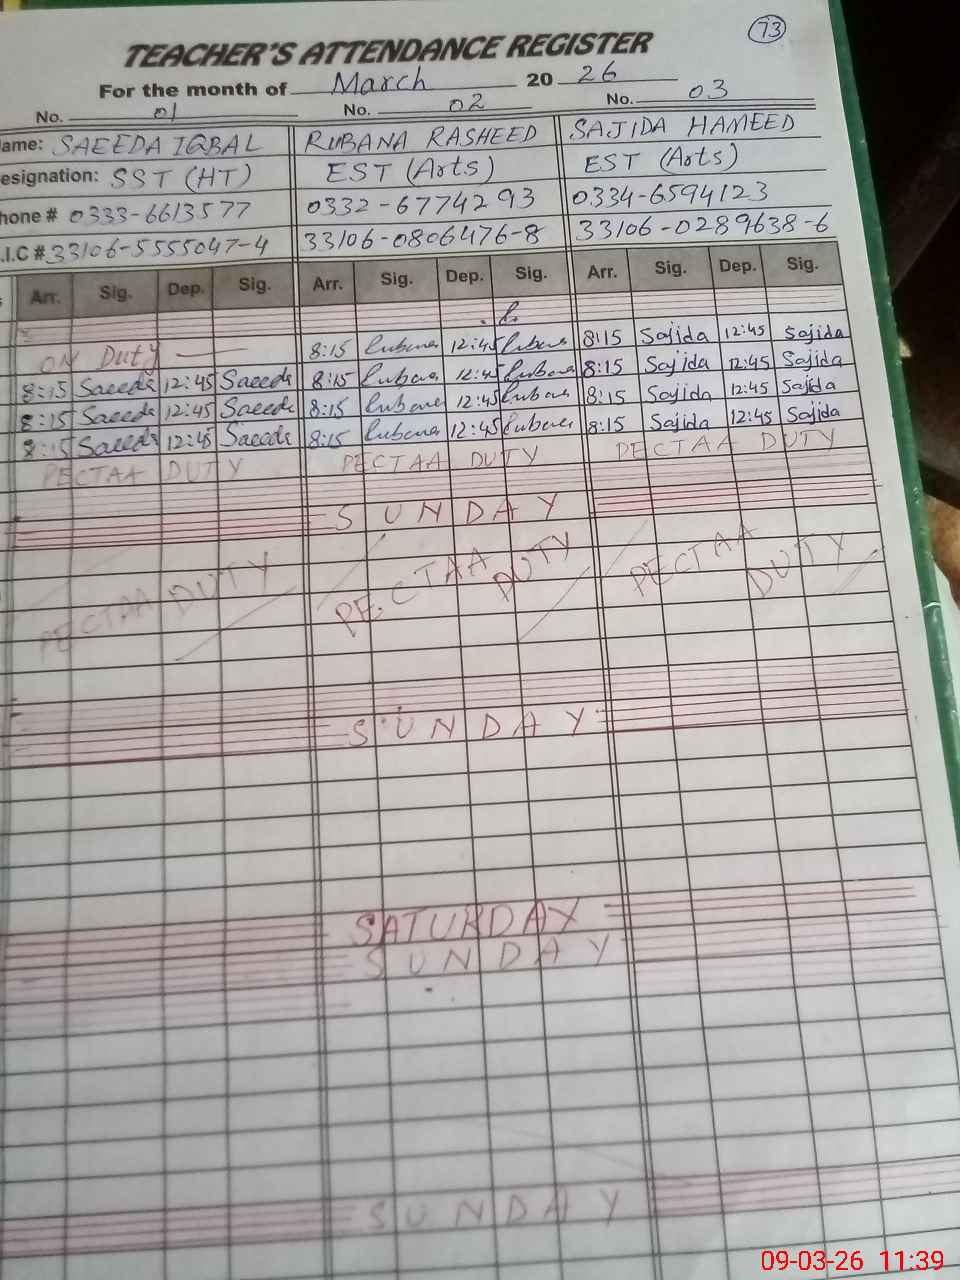 73
TEACHER'S ATTENDANCE REGISTER
For the month of March 20 26
No. 01 No. 02 No. 03
ame: SAEEDA IQBAL RUBANA RASHEED SAJIDA HAMEED
esignation: SST (HT) EST (Arts) EST (Arts)
hone # 0333-6613577 0332-6774293 0334-6594123
.I.C # 33106-5555047-4 33106-0806476-8 33106-0289638-6
Arr. Sig. Dep. Sig. Arr. Sig. Dep. Sig. Arr. Sig. Dep. Sig.
ON Duty 8:15 Rubana 12:45 Rubana 8:15 Sajida 12:45 Sajida
8:15 Saeeda 12:45 Saeeda 8:15 Rubana 12:45 Rubana 8:15 Sajida 12:45 Sajida
8:15 Saeeda 12:45 Saeeda 8:15 Rubana 12:45 Rubana 8:15 Sajida 12:45 Sajida
8:15 Saeeda 12:45 Saeeda 8:15 Rubana 12:45 Rubana 8:15 Sajida 12:45 Sajida
PECTAA DUTY PECTAA DUTY PECTAA DUTY
SUNDAY
PECTAA DUTY PECTAA DUTY PECTAA DUTY
SUNDAY
SATURDAY
SUNDAY
SUNDAY
09-03-26 11:39